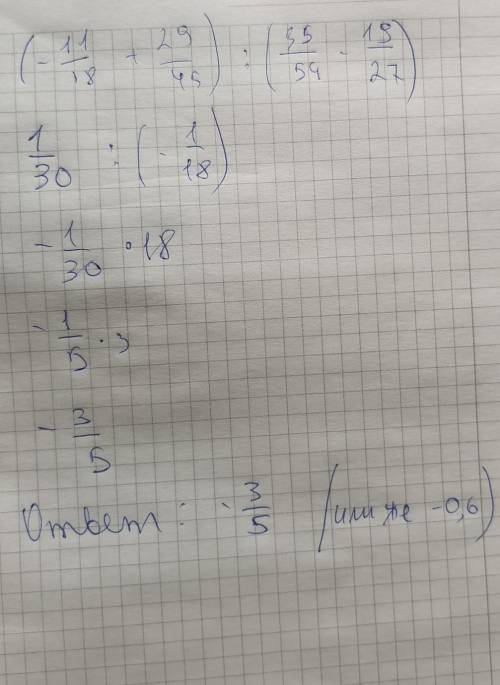 (-11/18 + 29/45) : (35/54 - 19/27)
1/30 : (-1/18)
-1/30 • 18
-1/5 · 3
-3/5
Ответ: -3/5 (или же -0,6)